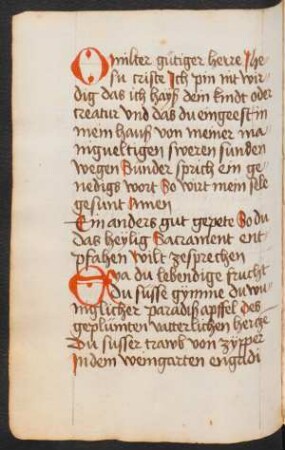 O milter gütiger herre Jhe
su criste Ich pin nit wir
dig das ich hayß dein kindt oder
creatur vnd das du eingeest in
mein hauß von meiner ma
nigueltigen sweren sunden
wegen Sunder sprich ein ge
nedigs wort So wirt mein sele
gesunt Amen
Ein anders gut gepete So du
das heylig Sacrament ent
pfahen wilt zesprechen
Eya du lebendige frucht
Du susse gymme du wu
niglicher paradißapffel des
geplümten vatterlichen hertze
Du susser trawb von zypper
In dem weingarten engadi